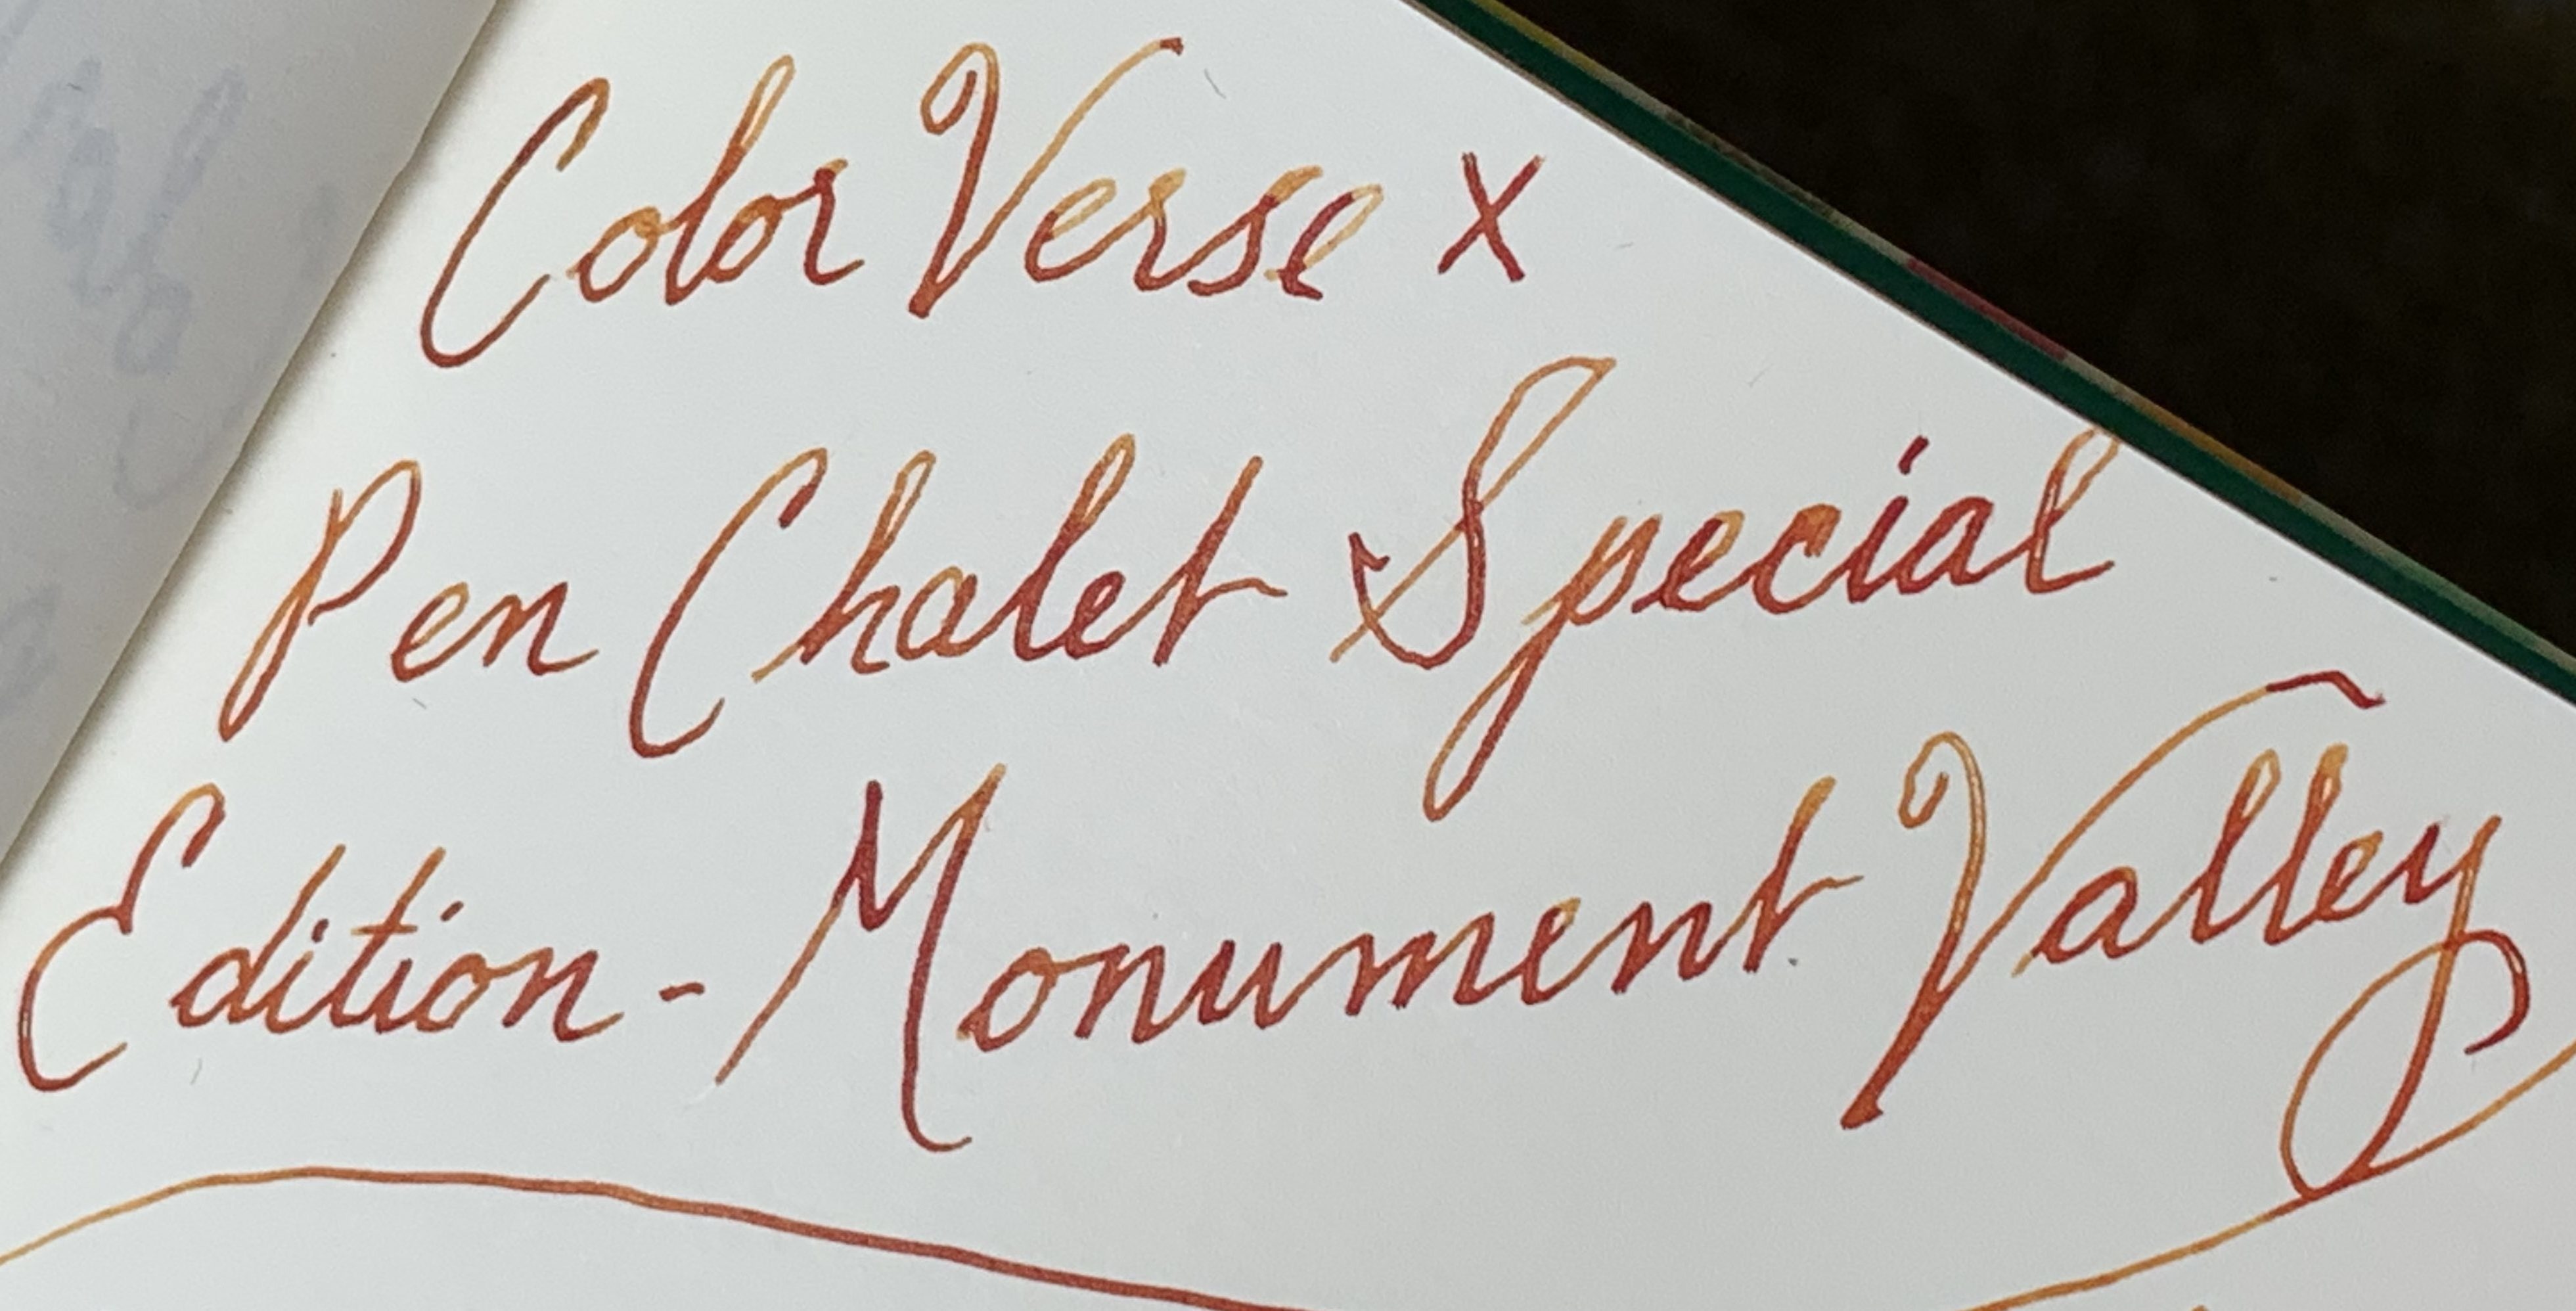 Color Verse x
Pen Chalet Special
Edition - Monument Valley